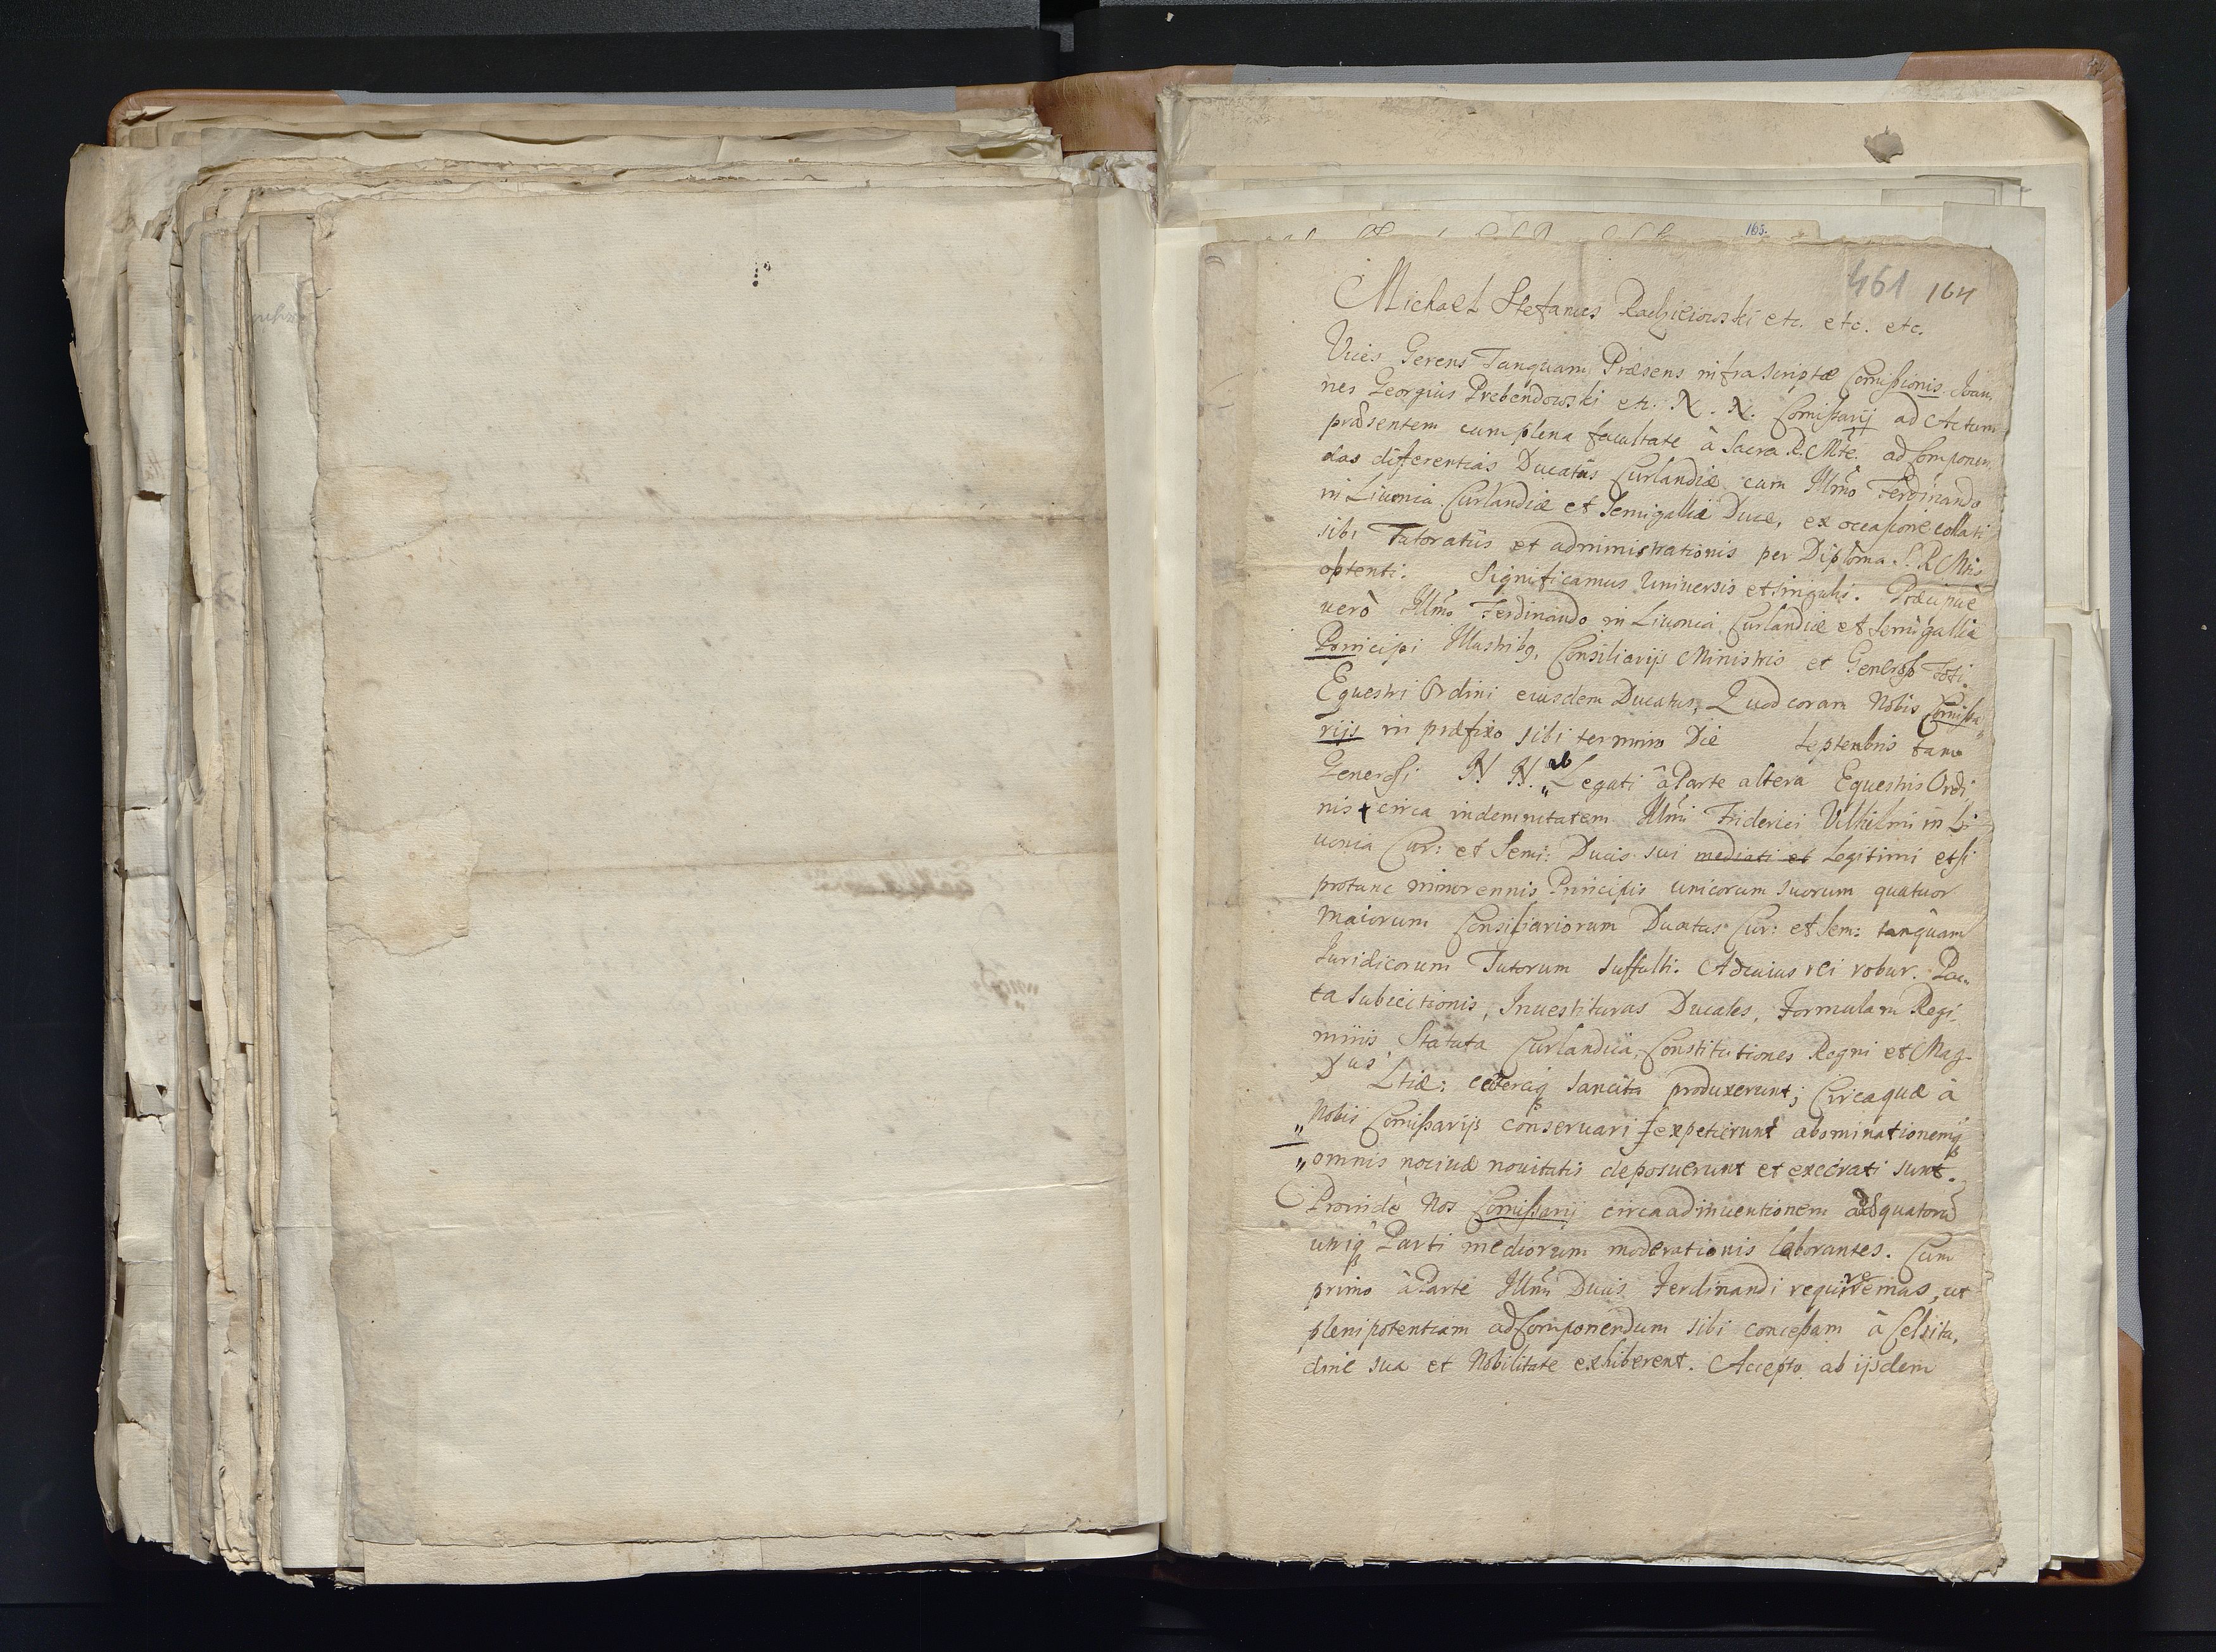 165.
461 164
Michael Stefanus Radzieiowski etc. etc. etc.
Vices Gerens Tanquam Præsens infrascriptæ Comissionis Ioan,
nes Georgius Prebendowski etc. N. N. Comissarij ad Actum
præsentem cum plena facultate à Sacra R. Mte. ad Componen,
das differentias Ducatûs Curlandiæ cum Illmo Ferdinando
in Liuonia Curlandiæ et Semigalliæ Duce, ex occasione collati
sibi Tutoratûs et administrationis per Diploma S. R. Mtis
obtenti. Significamus Vniuersis et singulis. Præcipuè
uerò Illmo Ferdinando in Liuonia Curlandiæ et Semigallia
Principi Illustribq, Consiliarijs Ministris et Generoso Toti
Equestri Ordini eiusdem Ducatus, Quod coram Nobis Comissa,
rijs in præfixo sibi termino Die Septembris tam
Generosi N N. ab Legati à Parte altera Equestris Ordi,
nis circa indemnitatem Illmi Friderici Vilhelmi in Li
uonia Cur: et Semi: Ducis sui mediati et Legitimi etsi
protunc minorennis Principis unicorum suorum quatuor
Maiorum Consiliariorum Ducatus Cur: et Sem: tanquam
Iuridicorum Tutorum suffulti. Ad cuius rei robur. Pac,,
ta Subiectionis, Inuestituras Ducales, Formulam Regi,
minis Statuta Curlandiia, Constitutiones Regni et Mag.
Dus Ltiæ: cæteraq sancita produxerunt; Circa quæ à
Nobis Comissarijs conseruari expetierunt abominationemq
omnis nociuæ nouitatis deposuerunt et execrati sunt.
Proinde Nos Comissarij circa adinuentionem adæquatorũ
utriq Parti mediorum moderationis laborantes. Cum
primo à Parte Illmi Ducis Ferdinandi requireremus, ut
plenipotentiam ad Componendum sibi concessam à Celsitu,
dine sua et Nobilitate exhiberent. Accepto ab ijsdem